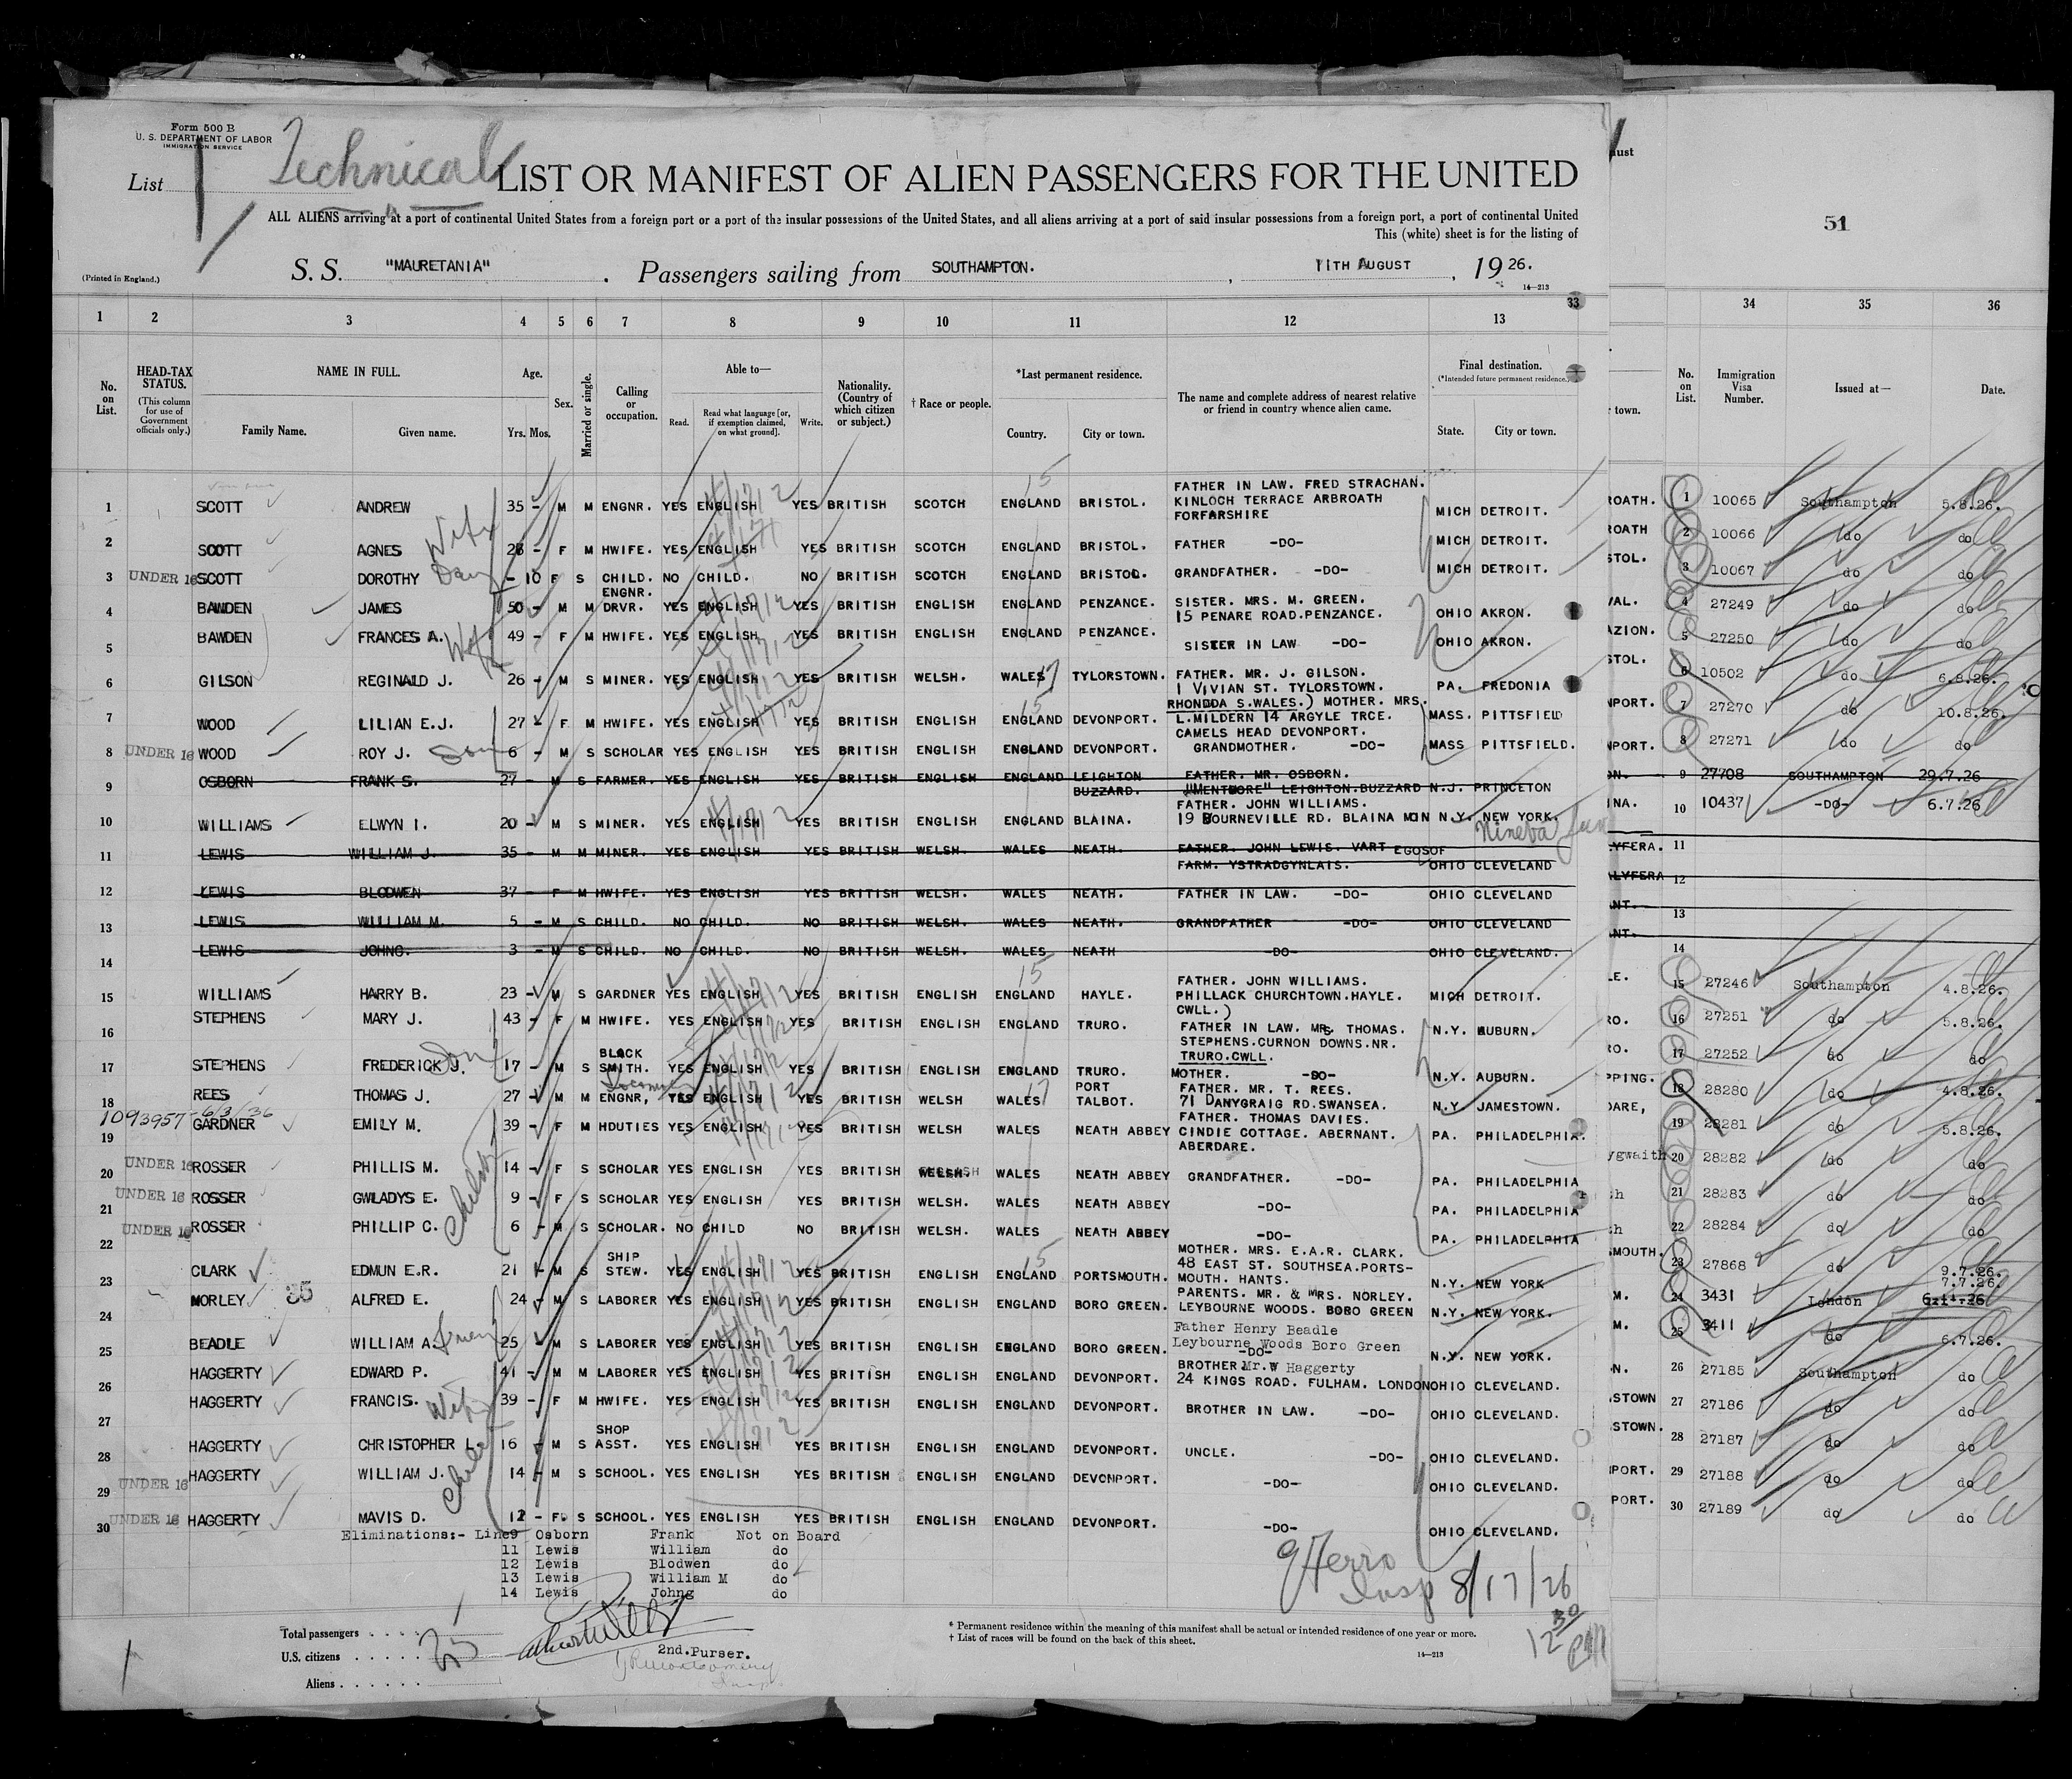 Form 500 B
U. S. DEPARTMENT OF LABOR
IMMIGRATION SERVICE
List
Technical
LIST OR MANIFEST OF ALIEN PASSENGERS FOR THE UNITED
ALL ALIENS arriving at a port of continental United States from a foreign port or a port of the insular possessions of the United States, and all aliens arriving at a port of said insular possessions from a foreign port, a port of continental United
This (white) sheet is for the listing of
51
(Printed in England.)
S. S. "MAURETANIA" . Passengers sailing from SOUTHAMPTON. , 11TH AUGUST , 1926.
14—213
1 2 3 4 5 6 7 8 9 10 11 12 13 33 34 35 36
No. on List.
HEAD-TAX STATUS.
(This column for use of Government officials only.)
NAME IN FULL.
Family Name. Given name.
Age.
Yrs. Mos.
Sex.
Married or single.
Calling or occupation.
Able to—
Read. Read what language [or, if exemption claimed, on what ground]. Write.
Nationality. (Country of which citizen or subject.)
† Race or people.
*Last permanent residence.
Country. City or town.
The name and complete address of nearest relative or friend in country whence alien came.
Final destination.
(*Intended future permanent residence.)
State. City or town.
town.
No. on List.
Immigration Visa Number.
Issued at—
Date.
1 SCOTT ANDREW 35 - M M ENGNR. YES ENGLISH YES BRITISH SCOTCH ENGLAND BRISTOL. FATHER IN LAW. FRED STRACHAN. KINLOCH TERRACE ARBROATH FORFARSHIRE MICH DETROIT. ROATH. 1 10065 Southampton 5.8.26.
2 SCOTT AGNES Wife 28 - F M HWIFE. YES ENGLISH YES BRITISH SCOTCH ENGLAND BRISTOL. FATHER -DO- MICH DETROIT. ROATH 2 10066 do do
3 UNDER 16 SCOTT DOROTHY - 10 F S CHILD. NO CHILD. NO BRITISH SCOTCH ENGLAND BRISTOL. GRANDFATHER. -DO- MICH DETROIT. STOL. 3 10067 do do
4 BAWDEN JAMES 50 - M M ENGNR. DRVR. YES ENGLISH YES BRITISH ENGLISH ENGLAND PENZANCE. SISTER. MRS. M. GREEN. 15 PENARE ROAD.PENZANCE. OHIO AKRON. VAL. 4 27249 do do
5 BAWDEN FRANCES A. Wife 49 - F M HWIFE. YES ENGLISH YES BRITISH ENGLISH ENGLAND PENZANCE. SISTER IN LAW -DO- OHIO AKRON. AZION. 5 27250 do do
6 GILSON REGINALD J. 26 - M S MINER. YES ENGLISH YES BRITISH WELSH. WALES TYLORSTOWN. FATHER. MR. J. GILSON. 1 VIVIAN ST. TYLORSTOWN. RHONDDA S.WALES.) PA. FREDONIA STOL. 6 10502 do 6.8.26.
7 WOOD LILIAN E.J. 27 - F M HWIFE. YES ENGLISH YES BRITISH ENGLISH ENGLAND DEVONPORT. MOTHER. MRS. L.MILDERN 14 ARGYLE TRCE. CAMELS HEAD DEVONPORT. MASS. PITTSFIELD NPORT. 7 27270 do 10.8.26.
8 UNDER 16 WOOD ROY J. Son 6 - M S SCHOLAR YES ENGLISH YES BRITISH ENGLISH ENGLAND DEVONPORT. GRANDMOTHER. -DO- MASS PITTSFIELD. NPORT. 8 27271 do do
9 OSBORN FRANK S. 27 - M S FARMER. YES ENGLISH YES BRITISH ENGLISH ENGLAND LEIGHTON BUZZARD. FATHER. MR. OSBORN. "MENTMORE" LEIGHTON.BUZZARD N.J. PRINCETON ON. 9 27708 SOUTHAMPTON 29.7.26
10 WILLIAMS ELWYN I. 20 - M S MINER. YES ENGLISH YES BRITISH ENGLISH ENGLAND BLAINA. FATHER. JOHN WILLIAMS. 19 BOURNEVILLE RD. BLAINA MON N.Y. NEW YORK. INA. 10 10437 -DO- 6.7.26
11 LEWIS WILLIAM J. 35 - M M MINER. YES ENGLISH YES BRITISH WELSH. WALES NEATH. FATHER. JOHN LEWIS. VART EGOSOF FARM. YSTRADGYNLAIS. OHIO CLEVELAND LYFERA. 11
12 LEWIS BLODWEN 37 - F M HWIFE. YES ENGLISH YES BRITISH WELSH. WALES NEATH. FATHER IN LAW. -DO- OHIO CLEVELAND ALYFERA 12
13 LEWIS WILLIAM M. 5 - M S CHILD. NO CHILD. NO BRITISH WELSH. WALES NEATH. GRANDFATHER -DO- OHIO CLEVELAND ANT. 13
14 LEWIS JOHNG. 3 - M S CHILD. NO CHILD. NO BRITISH WELSH. WALES NEATH -DO- OHIO CLEVELAND. ANT. 14
15 WILLIAMS HARRY B. 23 - M S GARDNER YES ENGLISH YES BRITISH ENGLISH ENGLAND HAYLE. FATHER. JOHN WILLIAMS. PHILLACK CHURCHTOWN.HAYLE. CWLL.) MICH DETROIT. LE. 15 27246 Southampton 4.8.26.
16 STEPHENS MARY J. 43 - F M HWIFE. YES ENGLISH YES BRITISH ENGLISH ENGLAND TRURO. FATHER IN LAW. MRS. THOMAS. STEPHENS.CURNON DOWNS.NR. TRURO.CWLL. N.Y. AUBURN. RO. 16 27251 do 5.8.26.
17 STEPHENS FREDERICK J. Son 17 - M S BLACK SMITH. YES ENGLISH YES BRITISH ENGLISH ENGLAND TRURO. MOTHER. -DO- N.Y. AUBURN. RO. 17 27252 do do
18 REES THOMAS J. 27 - M M ENGNR, YES ENGLISH YES BRITISH WELSH WALES PORT TALBOT. FATHER. MR. T. REES. 71 DANYGRAIG RD.SWANSEA. N.Y JAMESTOWN. PPING. 18 28280 do 4.8.26.
1093957 - 6/3/36
19 GARDNER EMILY M. 39 - F M HDUTIES YES ENGLISH YES BRITISH WELSH WALES NEATH ABBEY FATHER. THOMAS DAVIES. CINDIE COTTAGE. ABERNANT. ABERDARE. PA. PHILADELPHIA. DARE, 19 28281 do 5.8.26.
20 UNDER 16 ROSSER PHILLIS M. 14 - F S SCHOLAR YES ENGLISH YES BRITISH WELSH. WALES NEATH ABBEY GRANDFATHER. -DO- PA. PHILADELPHIA ygwaith 20 28282 do do
21 UNDER 16 ROSSER GWLADYS E. Children 9 - F S SCHOLAR YES ENGLISH YES BRITISH WELSH. WALES NEATH ABBEY -DO- PA. PHILADELPHIA h 21 28283 do do
22 UNDER 16 ROSSER PHILLIP C. 6 - M S SCHOLAR. NO CHILD NO BRITISH WELSH. WALES NEATH ABBEY -DO- PA. PHILADELPHIA h 22 28284 do do
23 CLARK EDMUN E.R. 21 - M S SHIP STEW. YES ENGLISH YES BRITISH ENGLISH ENGLAND PORTSMOUTH. MOTHER. MRS. E.A.R. CLARK. 48 EAST ST. SOUTHSEA.PORTS- MOUTH. HANTS. N.Y. NEW YORK SMOUTH. 23 27868 do 9.7.26.
24 NORLEY 35 ALFRED E. 24 - M S LABORER YES ENGLISH YES BRITISH ENGLISH ENGLAND BORO GREEN. PARENTS. MR. & MRS. NORLEY. LEYBOURNE WOODS. BOBO GREEN N.Y. NEW YORK. M. 24 3431 London 7.7.26.
25 BEADLE WILLIAM A. 25 - M S LABORER YES ENGLISH YES BRITISH ENGLISH ENGLAND BORO GREEN. Father Henry Beadle Leybourne Woods Boro Green -DO- N.Y. NEW YORK. M. 25 3411 do 6.7.26.
26 HAGGERTY EDWARD P. 41 - M M LABORER YES ENGLISH YES BRITISH ENGLISH ENGLAND DEVONPORT. BROTHER.Mr.W Haggerty 24 KINGS ROAD. FULHAM. LONDON OHIO CLEVELAND. N. 26 27185 Southampton do
27 HAGGERTY FRANCIS. Wife 39 - F M HWIFE. YES ENGLISH YES BRITISH ENGLISH ENGLAND DEVONPORT. BROTHER IN LAW. -DO- OHIO CLEVELAND. STOWN 27 27186 do do
28 HAGGERTY CHRISTOPHER L. 16 - M S SHOP ASST. YES ENGLISH YES BRITISH ENGLISH ENGLAND DEVONPORT. UNCLE. -DO- OHIO CLEVELAND. STOWN. 28 27187 do do
29 UNDER 16 HAGGERTY WILLIAM J. Children 14 - M S SCHOOL. YES ENGLISH YES BRITISH ENGLISH ENGLAND DEVONPORT. -DO- OHIO CLEVELAND. PORT. 29 27188 do do
30 UNDER 16 HAGGERTY MAVIS D. 12 - F S SCHOOL. YES ENGLISH YES BRITISH ENGLISH ENGLAND DEVONPORT. -DO- OHIO CLEVELAND. PORT. 30 27189 do do
Eliminations:- Line9 Osborn Frank Not on Board
11 Lewis William do
12 Lewis Blodwen do
13 Lewis William M do
14 Lewis Johng do
Insp 8/17/26
12 30 PM
Total passengers
U.S. citizens
Aliens
25
2nd.Purser.
* Permanent residence within the meaning of this manifest shall be actual or intended residence of one year or more.
† List of races will be found on the back of this sheet.
14—213